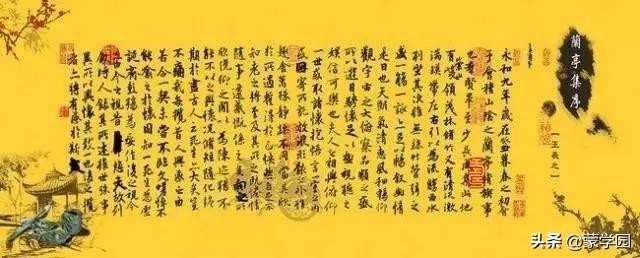 蘭亭集序
【王羲之】
永和九年歲在癸丑暮春之初會
于會稽山陰之蘭亭脩稧事
也群賢畢至少長咸集此地
有崇山峻領茂林脩竹又有清流激
湍暎帶左右引以為流觴曲水
列坐其次雖無絲竹管弦之
盛一觴一詠亦足以暢叙幽情
是日也天朗氣清惠風和暢仰
觀宇宙之大俯察品類之盛
所以遊目騁懷足以極視聽之
娛信可樂也夫人之相與俯仰
一世或取諸懷抱悟言一室之內
或因寄所託放浪形骸之外雖
趣舍萬殊靜躁不同當其欣
於所遇蹔得於己怏然自足不
知老之將至及其所之既惓情
隨事遷感慨係之矣向之所
欣俛仰之閒以為陳迹猶不
能不以之興懷況脩短隨化終
期於盡古人云死生亦大矣豈
不痛哉每攬昔人興感之由
若合一契未嘗不臨文嗟悼不
能喻之於懷固知一死生為虛
誕齊彭殤為妄作後之視今
亦由今之視昔悲夫故列
叙時人錄其所述雖世殊事
異所以興懷其致一也後之攬
者亦將有感於斯文
头条 @蒙学园